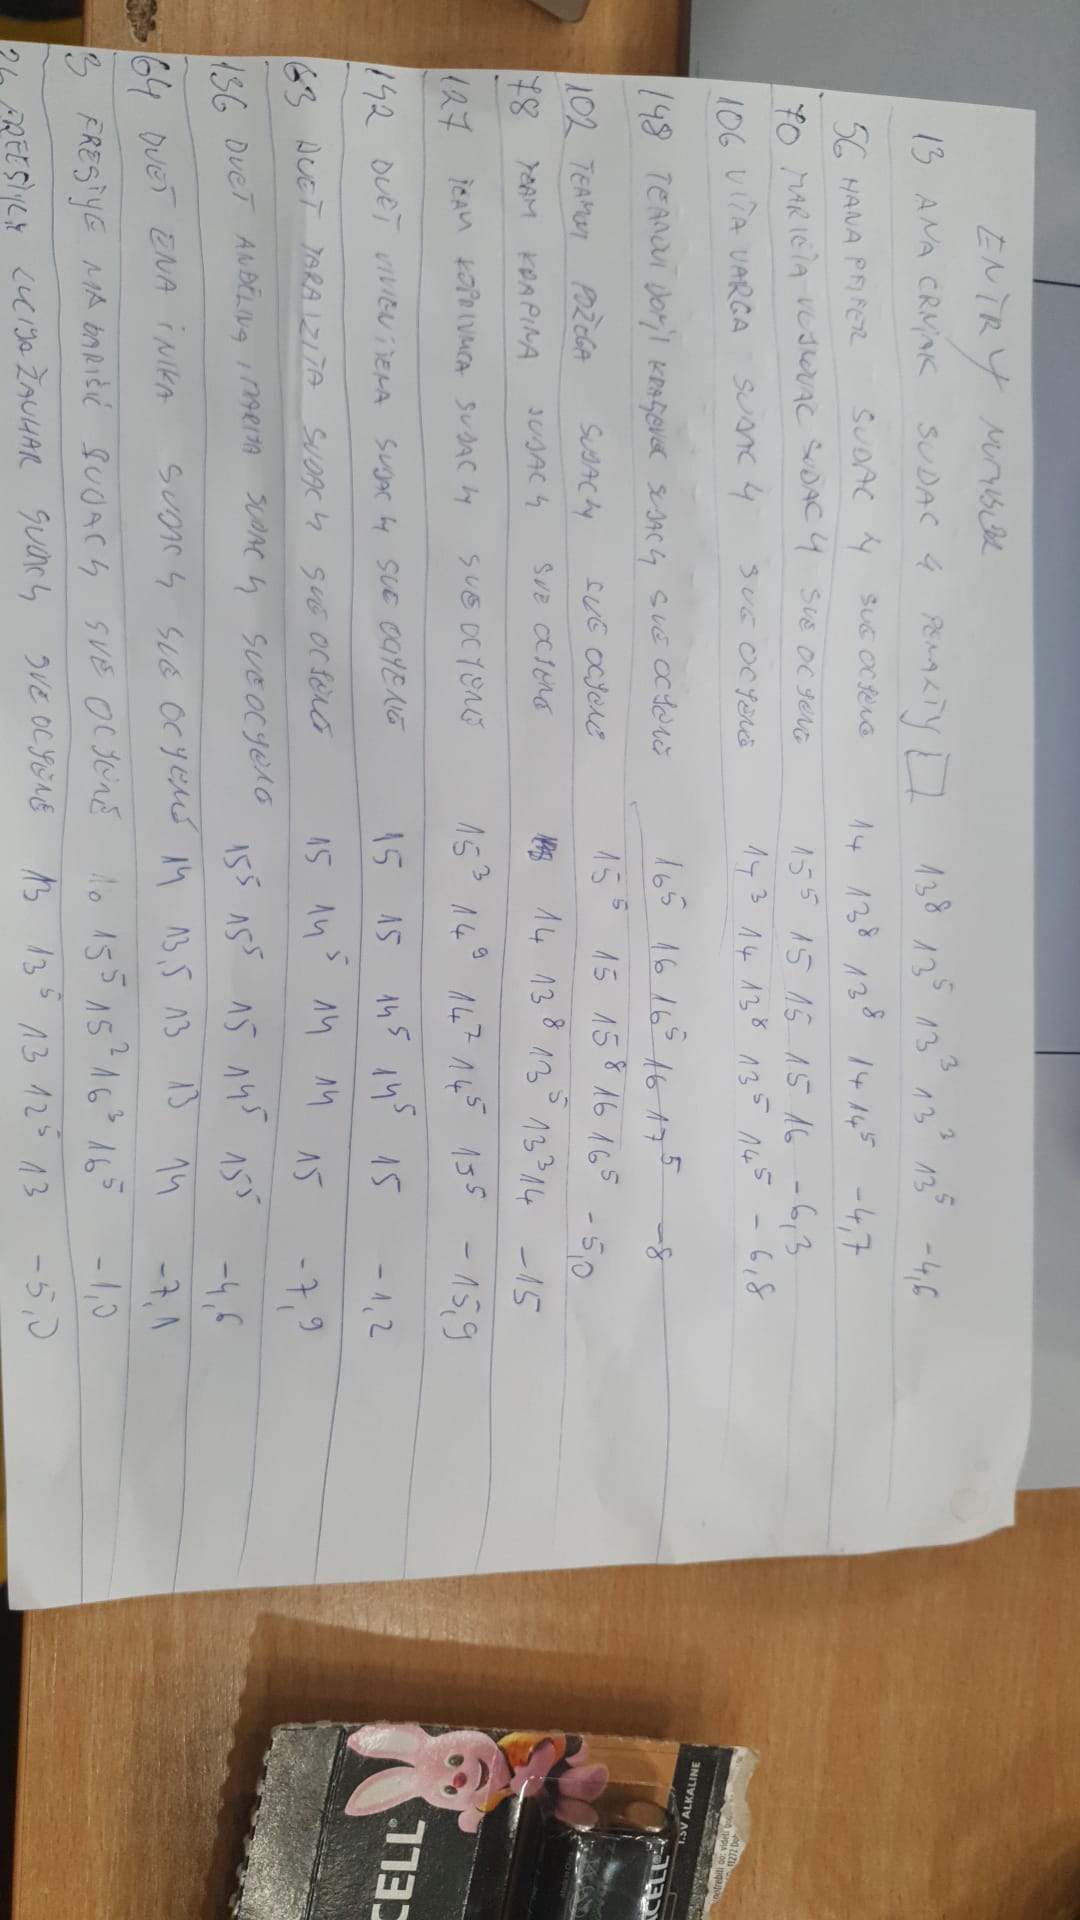 ENTRY NUMBER
13 ANA CRNJAK SUDAC 4 PENALTY 13⁸ 13⁵ 13³ 13³ 13⁵ -4,6
56 HANA PFIFER SUDAC 4 SVE OCJENE 14 13⁸ 13⁸ 14 14⁵ -4,7
70 MARIETA SUDAC 4 SVE OCJENE 15⁵ 15 15 15 16 -6,3
106 VITA VARGA SUDAC 4 SVE OCJENE 14³ 14 13⁸ 13⁵ 14⁵ -6,8
148 TEAMOVI KRAŠEVEC SUDAC 4 SVE OCJENE 16⁵ 16 16⁵ 16 17⁵ -8
102 POŽEGA SUDAC 4 SVE OCJENE 15⁵ 15 15⁸ 16 16⁵ -5,0
78 TEAM KRAPINA SUDAC 4 SVE OCJENE 14 13⁸ 13⁵ 13³ 14 -15
127 TEAM KOPRIVNICA SUDAC 4 SVE OCJENE 15³ 14⁹ 14⁷ 14⁵ 15⁵ -15,9
142 DUET SUDAC 4 SVE OCJENE 15 15 14⁵ 14⁵ 15 -1,2
63 DUET TARA I ZITA SUDAC 4 SVE OCJENE 15 14⁵ 14 14 15 -7,9
136 DUET ANĐELINA I MARIJA SUDAC 4 SVE OCJENE 15⁵ 15⁵ 15 14⁵ 15⁵ -4,6
64 DUET ENA I NIKA SUDAC 4 SVE OCJENE 14 13,5 13 13 14 -7,1
3 FRESTYE SUDAC 4 SVE OCJENE 15⁵ 15² 16³ 16⁵ -1,0
26 LUCIJA ŽAUHAR SUDAC 4 SVE OCJENE 13 13⁵ 13 12⁵ 13 -5,0
1,5V ALKALINE
CELL
CELL